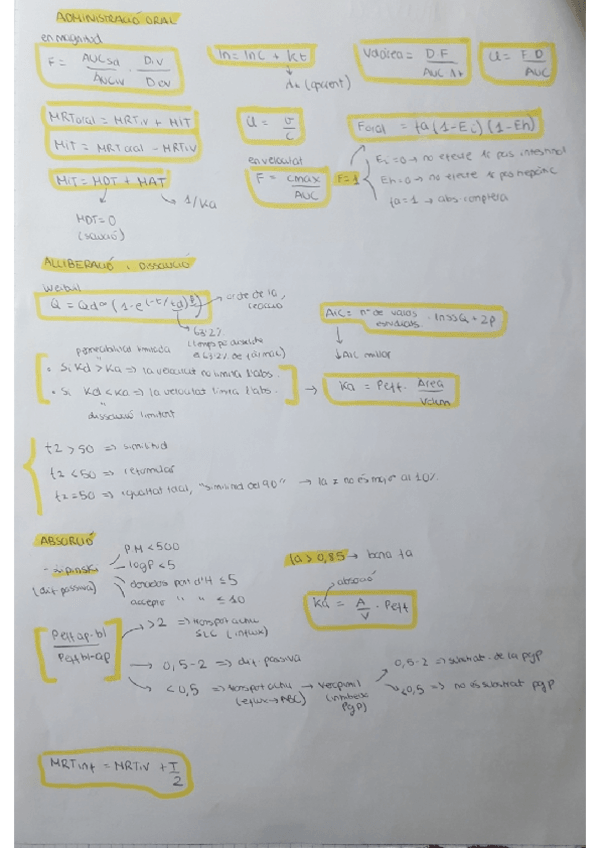 ADMINISTRACIÓ ORAL
en magnitud
F = AUCsa / AUCiv · Div / Dev
ln = lnC + kt
↓
λz (aparent)
Vdàrea = D·F / AUC·λz
Cl = F·D / AUC
MRToral = MRTiv + MIT
MIT = MRToral - MRTiv
MIT = MDT + MAT
MDT=0
(solució)
1/Ka
Cl = v / c
en velocitat
F = cmax / AUC
Foral = fa (1-Ei) (1-Eh)
F=1
Ei=0 → no efecte 1r pas intestinal
Eh=0 → no efecte 1r pas hepàtic
fa=1 → abs completa
ALLIBERACIÓ i DISSOLUCIÓ
Weibull
Q = Qd∞ (1-e(-t/td)β)
ordre de la
reacció
63'2%
(temps per dissoldre
63'2% de fàrmac)
AIC = nº de valors estudiats · lnSSQ + 2p
↓AIC millor
permeabilitat limitada
• Si Kd > Ka => la velocitat no limita l'abs.
• Si Kd < Ka => la velocitat limita l'abs.
dissolució limitant
→ Ka = Peff · Àrea / Volum
f2 > 50 => similitud
f2 < 50 => reformular
f2 = 50 => igualtat total, "similitud del 90" → la z no és major al 10%
ABSORCIÓ
- Lipinski
(dif passiva)
PM < 500
logP < 5
donadors pont d'H ≤ 5
acceptor " " ≤ 10
fa > 0,85 → bona fa
absorció
Ka = A / V · Peff
Peff ap-bl / Peff bl-ap
>2 => transport actiu
SLC (influx)
→ 0,5-2 => dif. passiva
<0,5 => transport actiu → Verapamil
(eflux → ABC) (inhibidor
PgP)
0,5-2 => substrat de la pgp
<0,5 => no és substrat pgp
MRTinf = MRTiv + T / 2